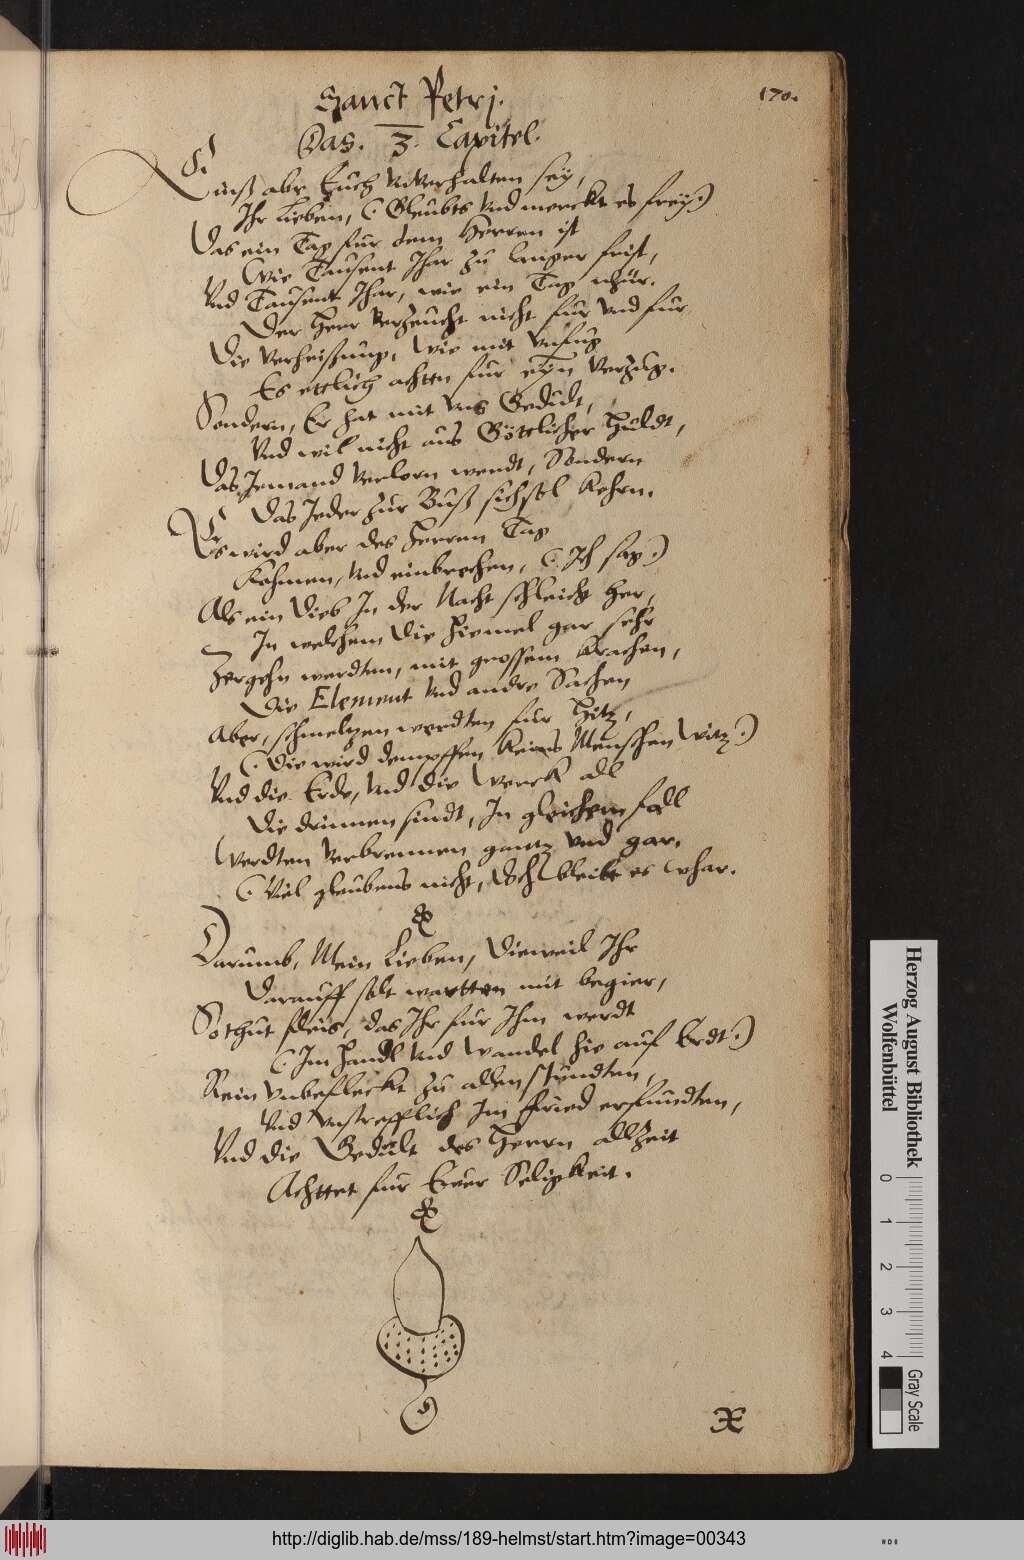 Sanct Petrj.
170.
Das. 3. Capitel.
Einß abr Euch vnverhalten sey,
Ihr Lieben, (: Gleubts vnd merckt es frey:)
Das ein Tag fur dem Herren ist
Wie Tausent Ihar zu langer frist,
Vnd Tausent Ihar, wie ein Tag nhur.
Der Herr verzeucht nicht fur vnd fur
Die verheissung, wie mit vnfug
Es ettlich achtn fur eyn verzug.
Sondern, Er hat mit vns Gedult,
Vnd wil nicht aus Göttlicher Huldt,
Das Jemand verlorn werdt, Sondern
Das Jeder zur Buß sich sol kehrn.
Es wird aber des Herren Tag
Kohmen, vnd einbrechen, (: Ich sag:)
Als ein Dieb In der Nacht schleicht her,
In welchem die Himel gar sehr
Zergehn werdten, mit grossem krachen,
Die Element vnd andre Sachen
Aber, schmeltzen werdten fur Hitz,
(: Die wird dempffen keins Menschen witz:)
Vnd die Erde, vnd die Werck all
Die drinnen sindt, In gleichem fall
Werdten verbrennen gantz vnd gar.
(: Viel gleubens nicht, doch bleibt es whar.
Darumb, Mein Lieben, Dieweil Ihr
Darauff solt wartten mit begier,
So thut fleis, das Ihr fur Ihm werdt
(: Im Handl vnd Wandel hie auf Erdt:)
Rein vnbefleckt zu allen stundten,
Vnd vnstrefflich Im fried erfundten,
Vnd die Gedult des Herrn allzeit
Achttet fur Ewer Seligkeit.
X
Herzog August Bibliothek
Wolfenbüttel
0 1 2 3 4
Gray Scale
http://diglib.hab.de/mss/189-helmst/start.htm?image=00343